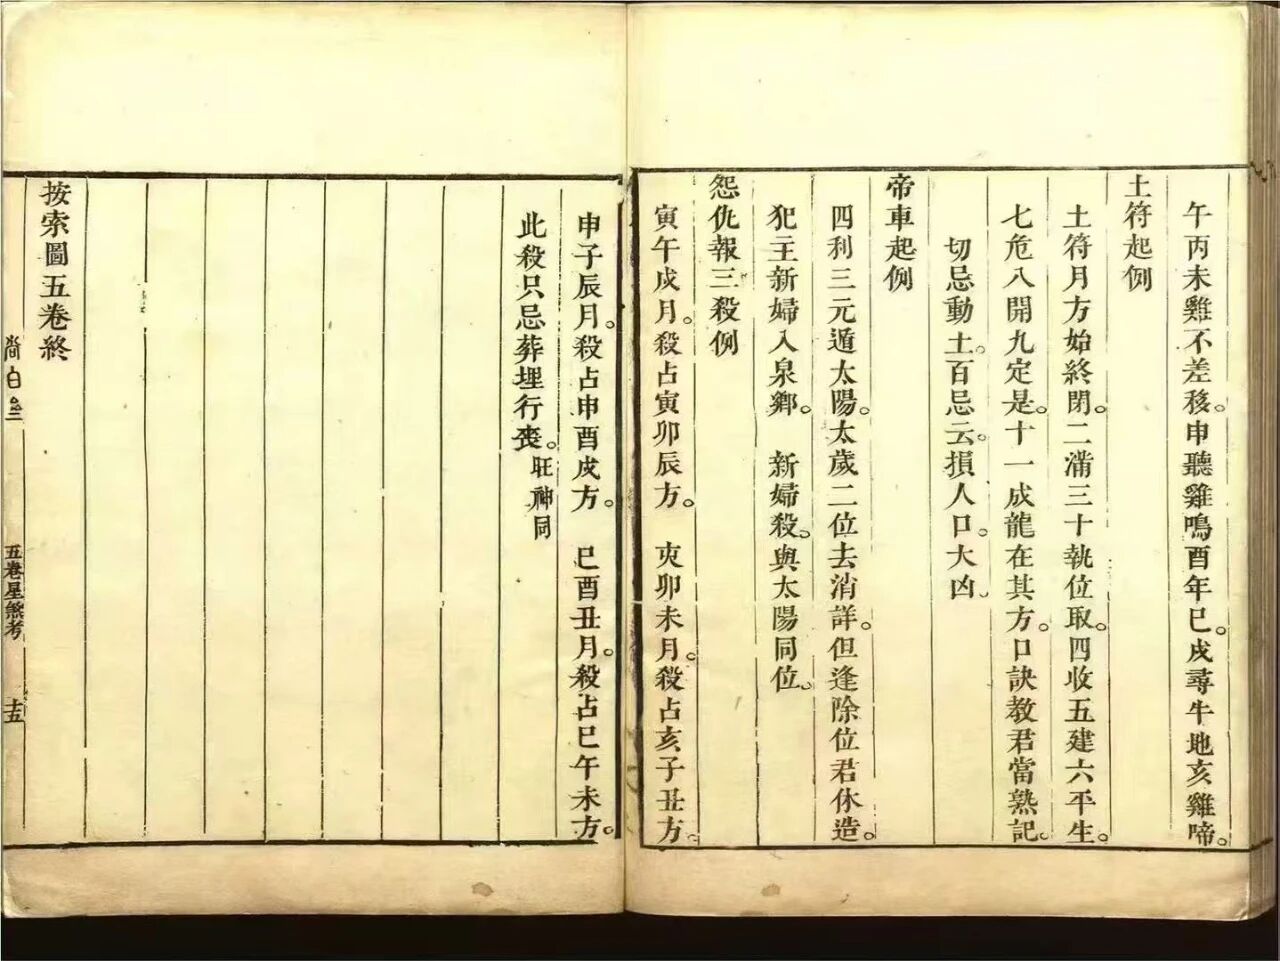 午丙未雞不差移。申聽雞鳴酉年巳。戌尋牛地亥雞啼。
土符起例
土符月方始終閉。二滿三十執位取。四收五建六平生。
七危八開九定是。十一成龍在其方。口訣教君當熟記。
切忌動土。百忌云。損人口。大凶。
帝車起例
四利三元遁太陽。太歲二位去消詳。但逢除位君休造。
犯主新婦入泉鄉。 新婦殺。與太陽同位。
怨仇報三殺例
寅午戌月。殺占寅卯辰方。 亥卯未月。殺占亥子丑方。
申子辰月。殺占申酉戌方。 巳酉丑月。殺占巳午未方。
此殺只忌葬埋行喪。旺神同
按索圖五卷終
五卷星煞考 十五